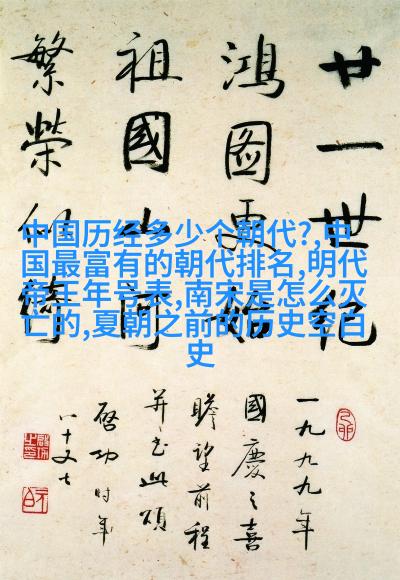 廿一世紀
鴻圖更始
祖國山河
繁榮似綺
中国历经多少个朝代?,中
国最富有的朝代排名,明代
帝王年号表,南宋是怎么灭
亡的,夏朝之前的历史空白
史
一九九九年
國慶之喜
瞻望前程
并書此頌
啓功時年
八十又七